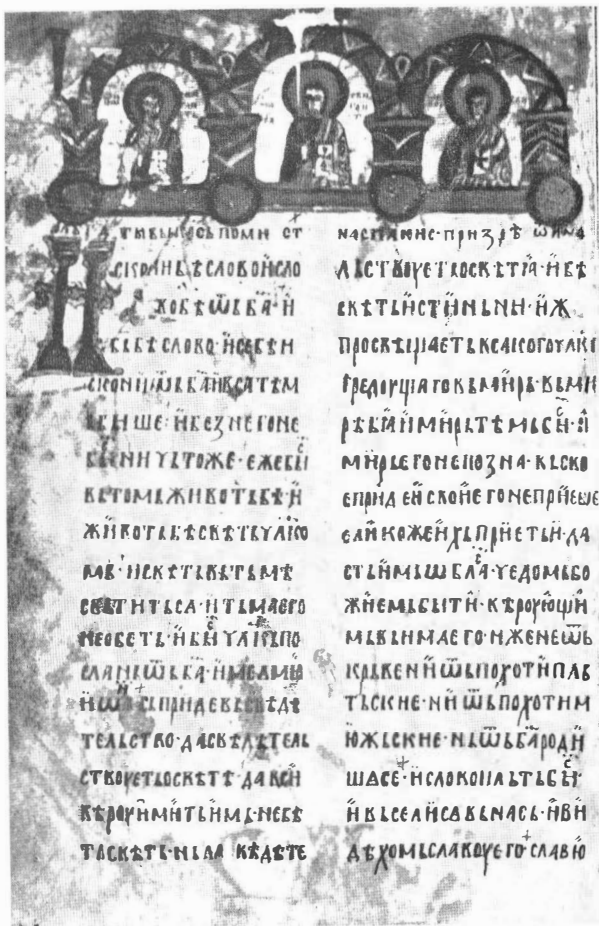 скони бѣ слово и сло
во бѣ ѿ ба̄ и
бь бѣ слово и се бѣ и
скони ѿ ба̄ и вса тѣм
ь бише и без него не
би ничьтоже еже би
вь томь животь бѣ и
животь бѣ свѣть члк̄о
мь и свѣть вь тьмѣ
свѣтить са и тьма его
не обеть и би члк̄ь по
слань ѿ ба̄ има
сь приде вь свѣдѣ
тельство да свѣдѣтель
ствоуеть о свѣтѣ да вси
вѣроу имить имь не бѣ
та свѣть нь да свѣдѣте
призрѣ ѿ
льствоуеть о свѣтѣ и бѣ
свѣть истиньни иж
просвѣщаеть всакого члк̄
гредоущаго вь мирь вь ми
рѣ бѣ и мирь тѣмь би и
мирь его не позна вь сво
е приде и свои его не приеше
елико же ихь приеть и да
сть имь ѡбла чедомь бо
жиемь бити вѣроующи
мь вь има его иже не ѿь
крьве ни ѿь похоти пль
тьские ни ѿь похоти м
южьские нь ѿь ба̄ роди
ше се и слово пльть би
и вьсели са вь нась и ви
дѣхомь славоу его славю